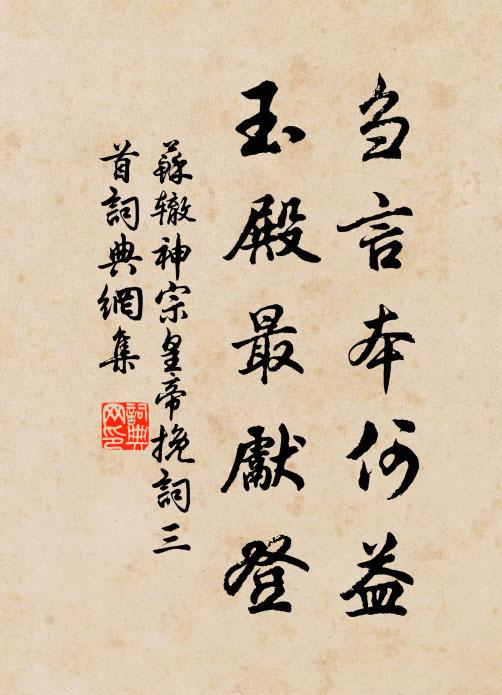 刍言本何益
玉殿最獻登
蘇轍神宗皇帝挽詞三
首詞典網集
詞典
网印